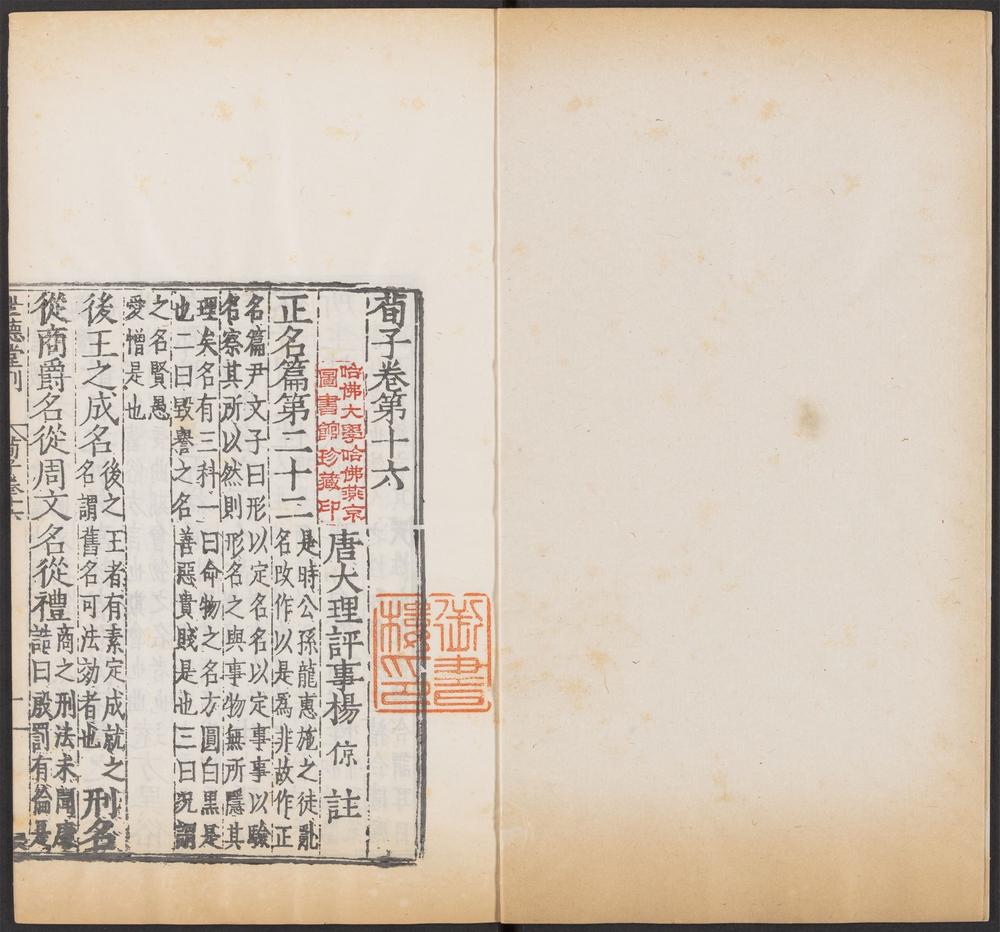 荀子卷第十六
唐大理評事楊倞註
哈佛大學哈佛燕京
圖書館珍藏印
御書
樓印
正名篇第二十二是時公孫龍惠施之徒亂
名改作以是爲非故作正
名篇尹文子曰形以定名名以定事事以驗
名察其所以然則形名之與事物無所隱其
理矣名有三科一曰命物之名方圓白黑是
也二曰毀譽之名善惡貴賤是也三曰況謂
之名賢愚
愛憎是也
後王之成名後之王者有素定成就之
名謂舊名可法効者也
刑名
從商爵名從周文名從禮商之刑法未聞康
誥曰殷罰有倫是
世德堂刊
荀子卷十六
一